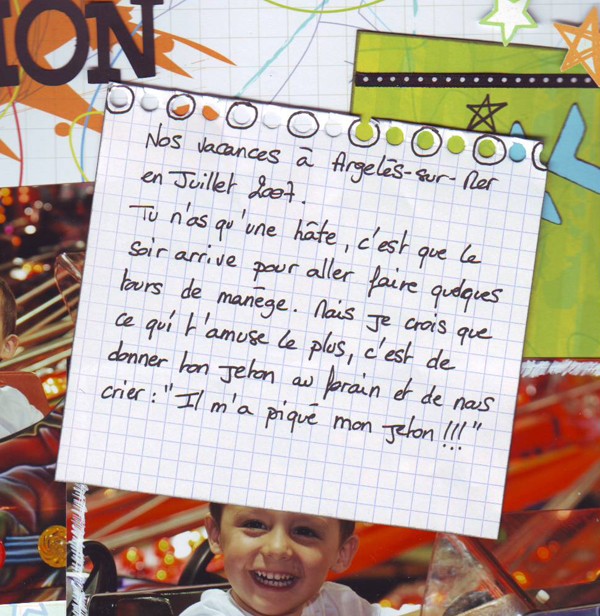 ION
Nos vacances à Argelès-sur-Mer
en Juillet 2007.
Tu n'as qu'une hâte, c'est que le
soir arrive pour aller faire quelques
tours de manège. Mais je crois que
ce qui t'amuse le plus, c'est de
donner ton jeton au forain et de nous
crier : "Il m'a piqué mon jeton !!!"